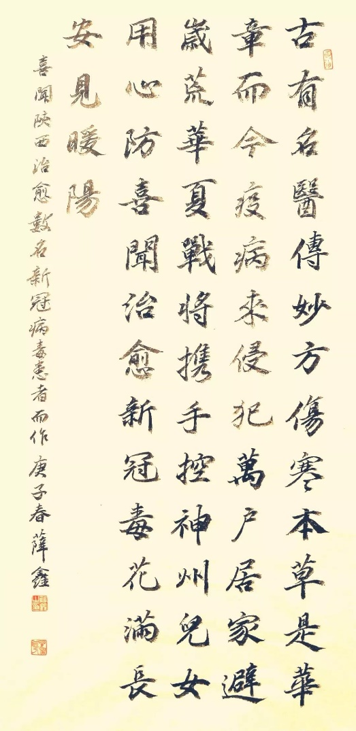 古有名醫傳妙方傷寒本草是華
章而今疫病来侵犯萬户居家避
歲荒華夏戰將携手控神州兒女
用心防喜聞治愈新冠毒花滿長
安見暖陽
喜聞陝西治愈數名新冠病毒患者而作 庚子春薛鑫